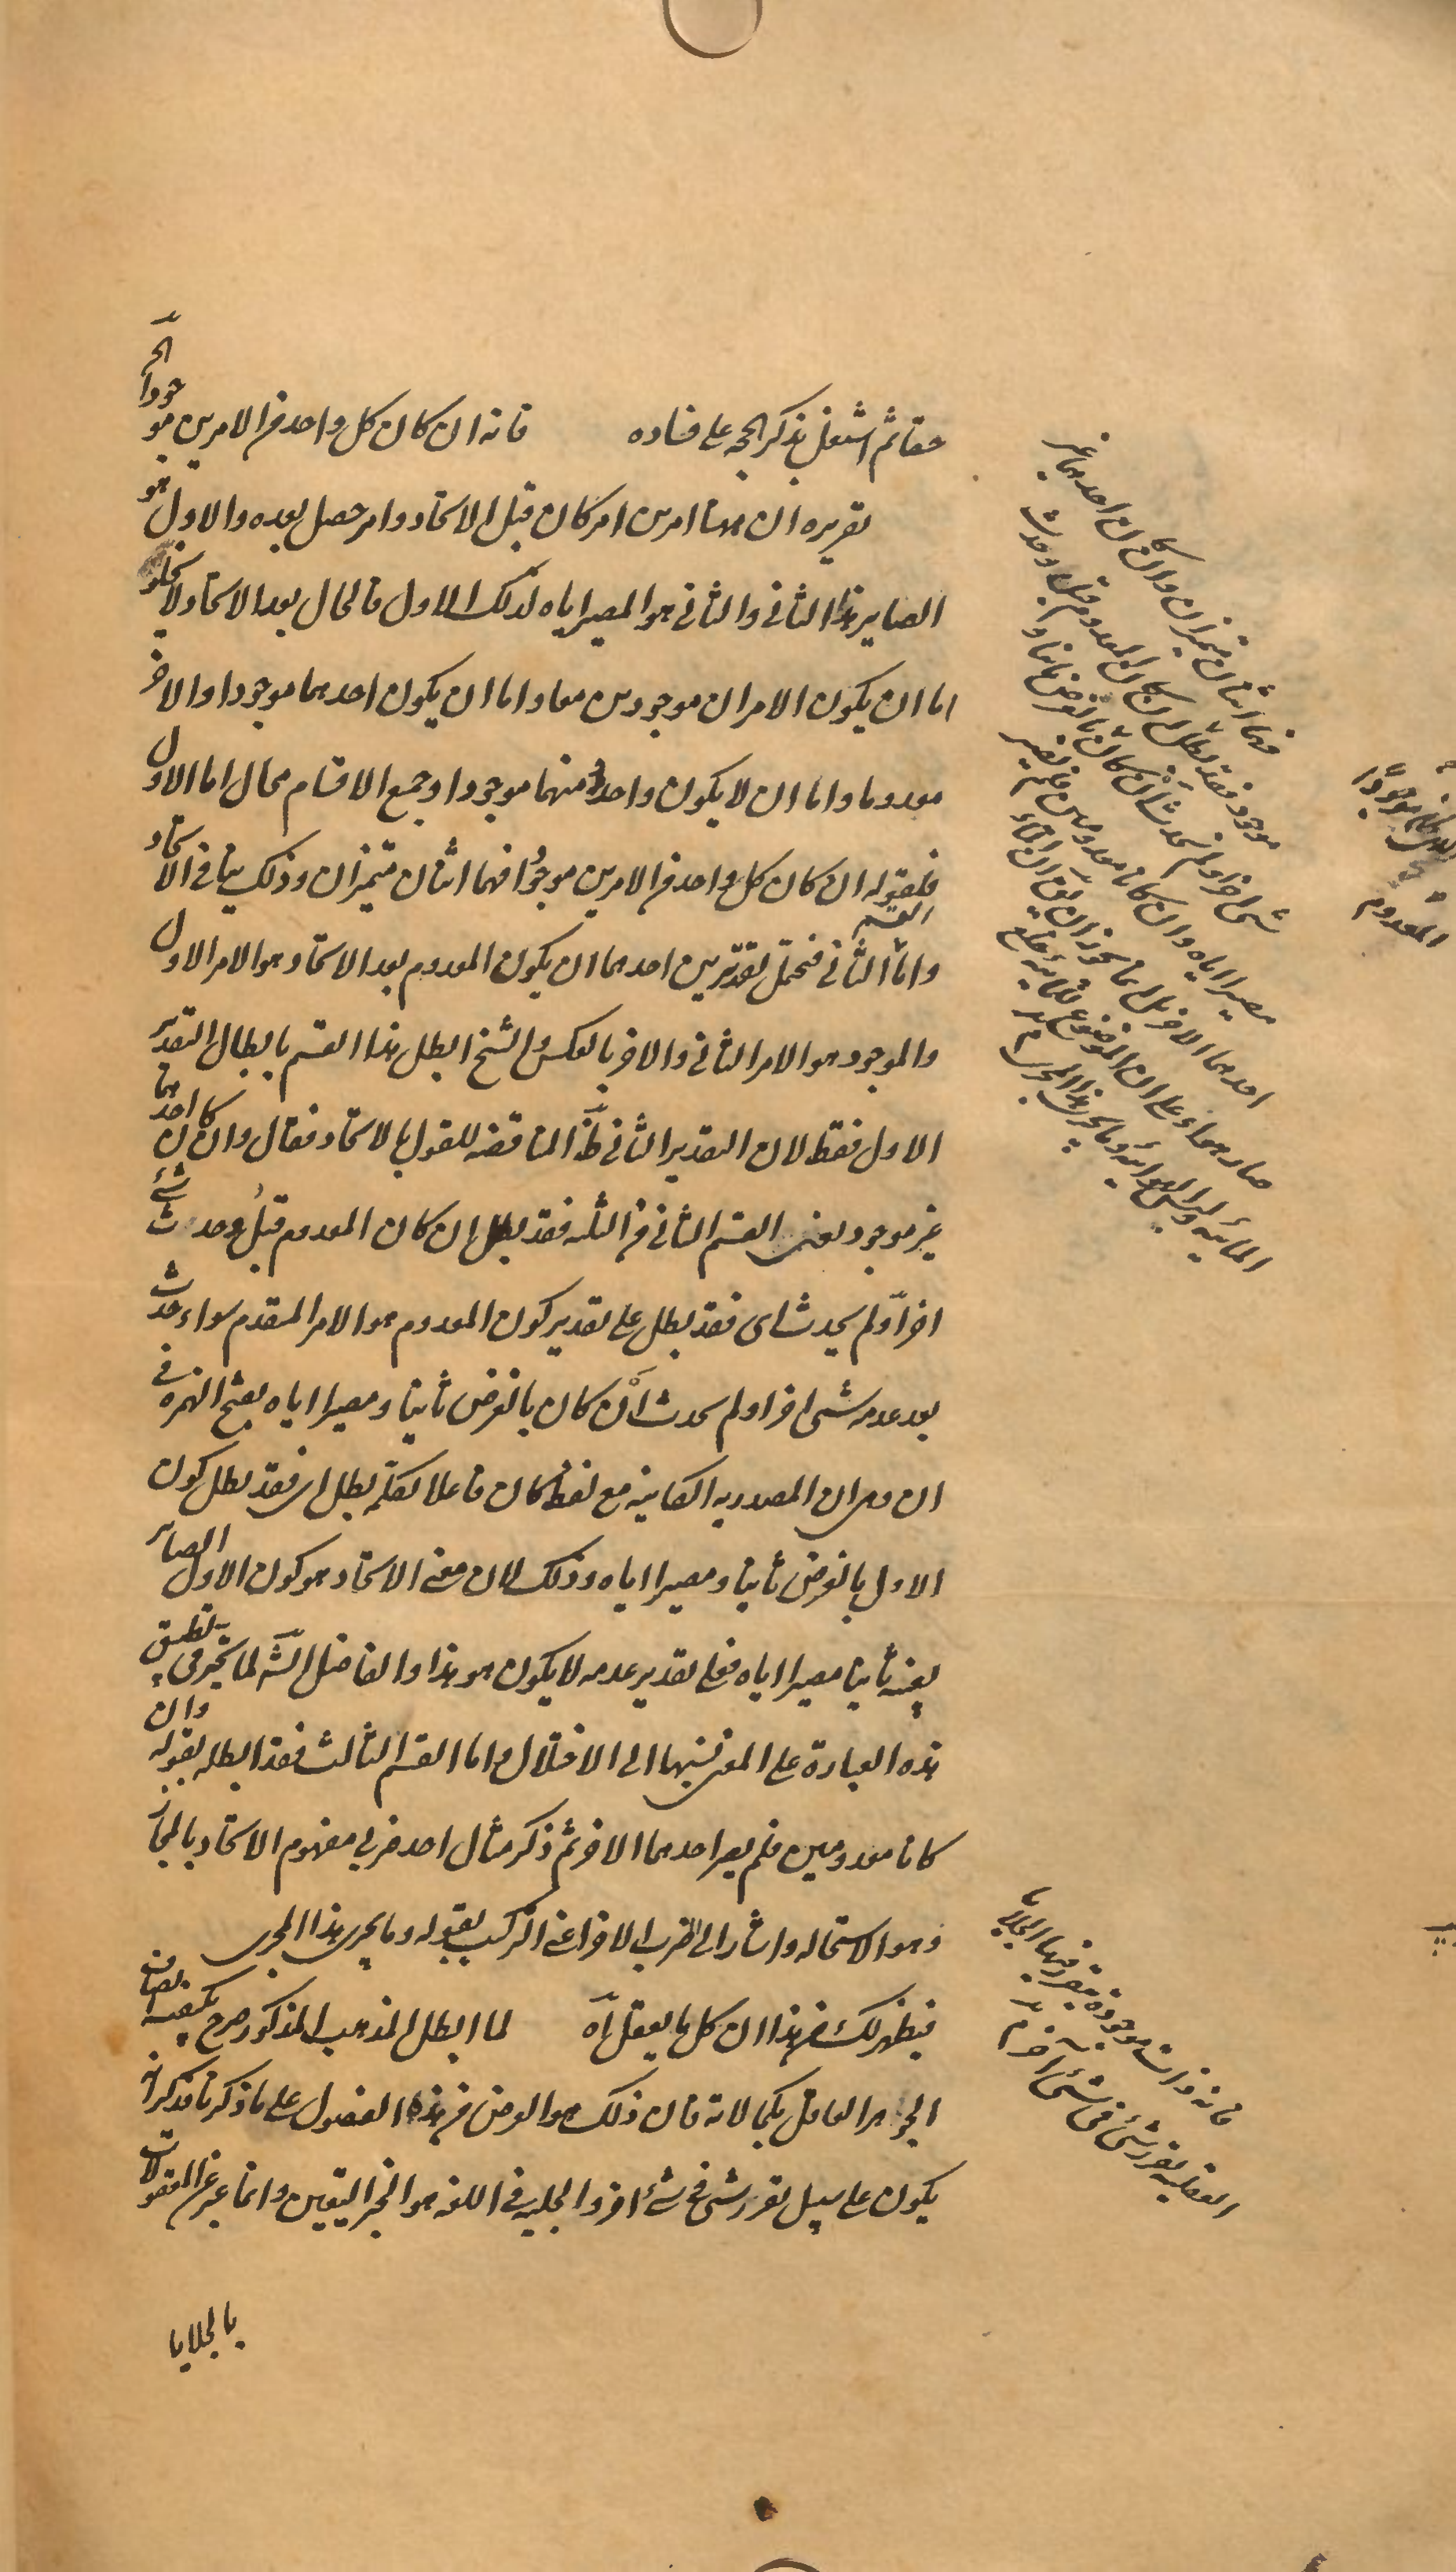 حقا ثم اشتغل بذكر الحجه على فساده فانه ان كان كل واحد من الامرين موجودا الخ
تقريره ان هنا امرين امر كان قبل الاتحاد وامر حصل بعده والاول هو
الصاير هذا الثانى والثانى هو المصير اياه لذلك الاول فالحال بعد الاتحاد لا يخلو
اما ان يكون الامران موجودين معا واما ان يكون احدهما موجودا والاخر
معدوما واما ان لا يكون واحد منهما موجودا وجميع الاقسام محال اما الاول
فلقوله ان كان كل واحد من الامرين موجودا فهما اثنان متميزان وذلك ينافى الاتحاد
واما القسم الثانى فيحتمل تقديرين احدهما ان يكون المعدوم بعد الاتحاد هو الامر الاول
والموجود هو الامر الثانى والاخر بالعكس والشيخ ابطل هذا القسم بابطال التقدير
الاول فقط لان التقدير الثانى ظ المناقضه للقول بالاتحاد فقال وان كان احدهما
غير موجود يعنى القسم الثانى من الثلثه فقد بطل ان كان المعدوم قبل وحدث شئ
اخر او لم يحدث اى فقد بطل على تقدير كون المعدوم هو الامر المتقدم سواء حدث
بعد عدمه شى اخر او لم يحدث أن كان بالفرض ثانيا ومصيرا اياه بفتح الهمزه فى
ان وهى ان المصدريه الكاينه مع لفظ كان فاعلا لكلمة بطل اى فقد بطل كون
الاول بالفرض ثانيا ومصيرا اياه وذلك لان معنى الاتحاد هو كون الاول الصاير
بعينه ثانيا مصيرا اياه فعلى تقدير عدمه لا يكون هو هذا والفاضل الش لما تحير فى تطبيق
هذه العبارة على المعنى نسبها الى الاختلال واما القسم الثالث فقد ابطله بقوله وان
كانا معدومين فلم يصر احدهما الاخر ثم ذكر مثال احد ضربى مفهوم الاتحاد بالمجاز
وهو الاستحاله واشار الى الضرب الاخر اعنى التركيب بقوله وما يجرى هذا المجرى
فيظهر لك من هذا ان كل ما يعقل آه لما ابطل المذهب المذكور صرح بكيفية اتصاف
الجوهر العاقل بكمالاته فان ذلك هو الغرض من هذه الفصول على ما ذكرنا فذكر انه
يكون على سبيل تقرر شى فى شئ اخر والجلية فى اللغه هو الخبر اليقين وانما عبر عن المعقولات
بالجلايا
فهما اثنان متميزان وان كان احدهما غير
موجود فقد بطل ان كان المعدوم قبل وحدث
شى اخر او لم يحدث أن كان بالفرض ثانيا و
مصيرا اياه وان كانا معدومين فلم يصير
احدهما الاخر بل انما يجوز ان يق ان الماء
صار هواء على ان الموضوع للمائية خلع
المائيه ولبس الهوائيه وما يجرى هذا المجرى
موجودا
المعدوم
فانه ذات موجودة يتقرر فيها الجلايا
العقليه تقرر شئ فى شئ آخر